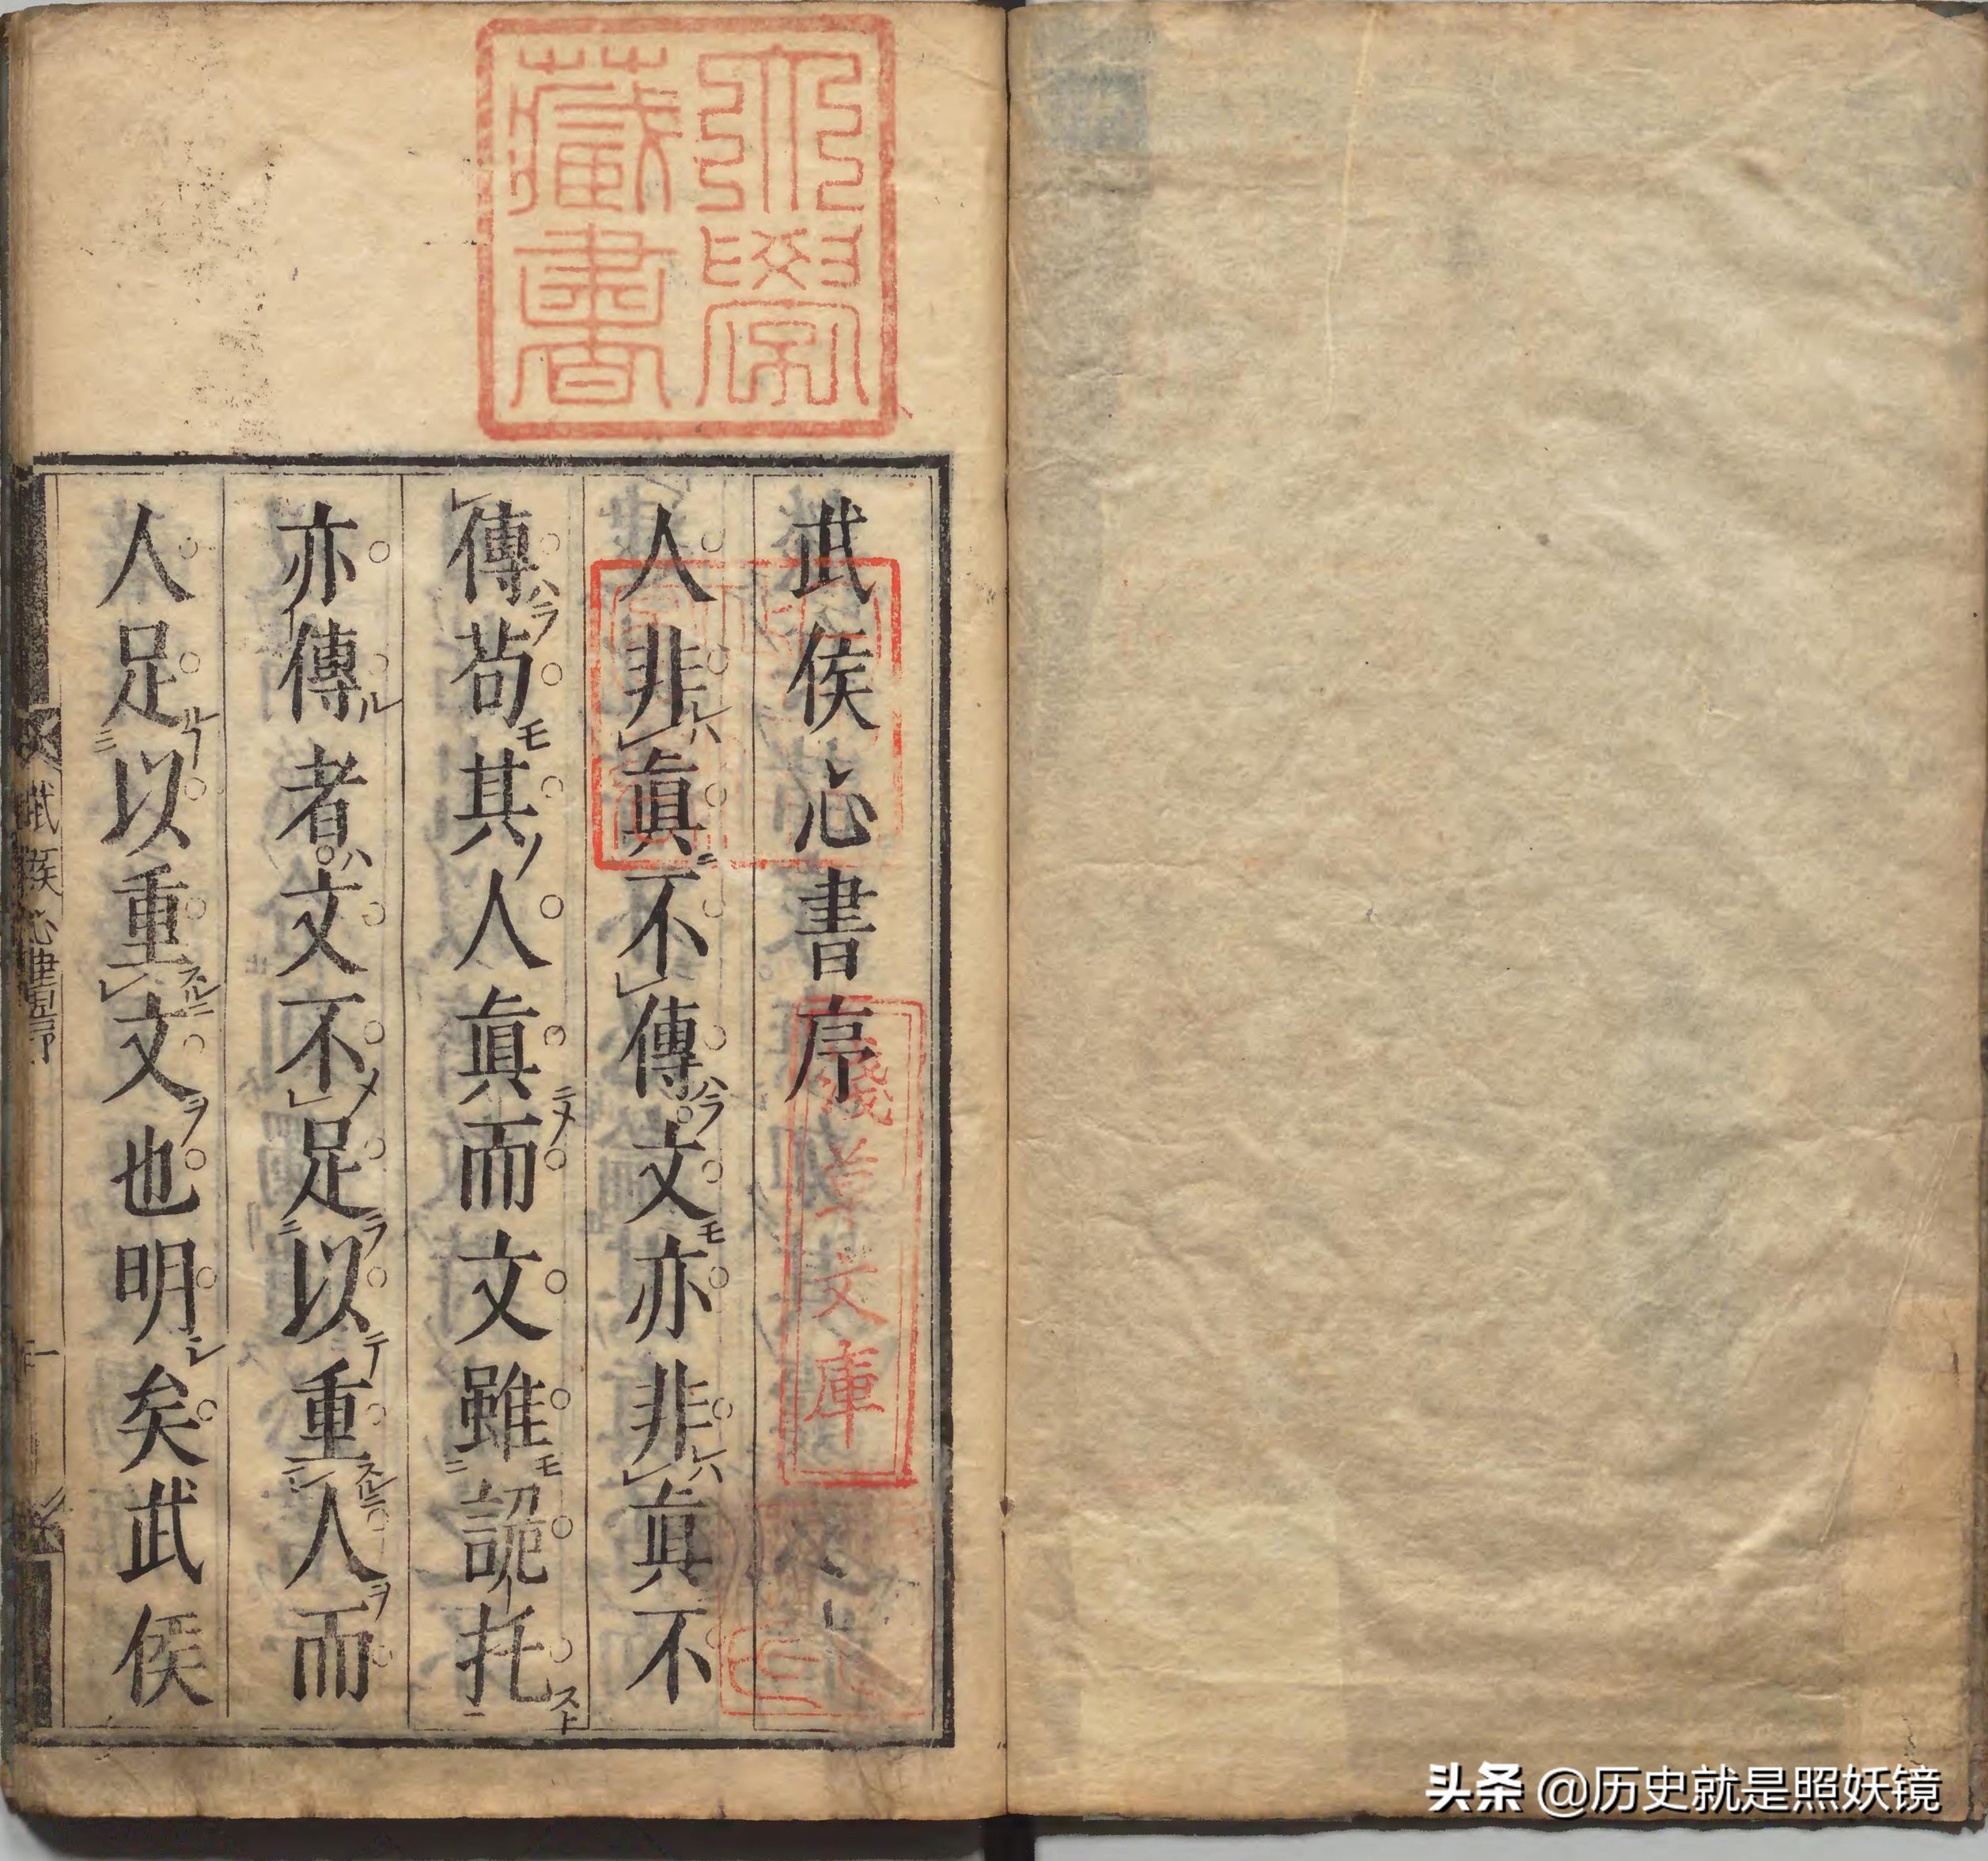 武侯心書序
人非眞不傳文亦非眞不
傳茍其人眞而文雖詭托
亦傳者文不足以重人而
人足以重文也明矣武侯
武侯心書序
一
藏書
文庫
头条 @历史就是照妖镜